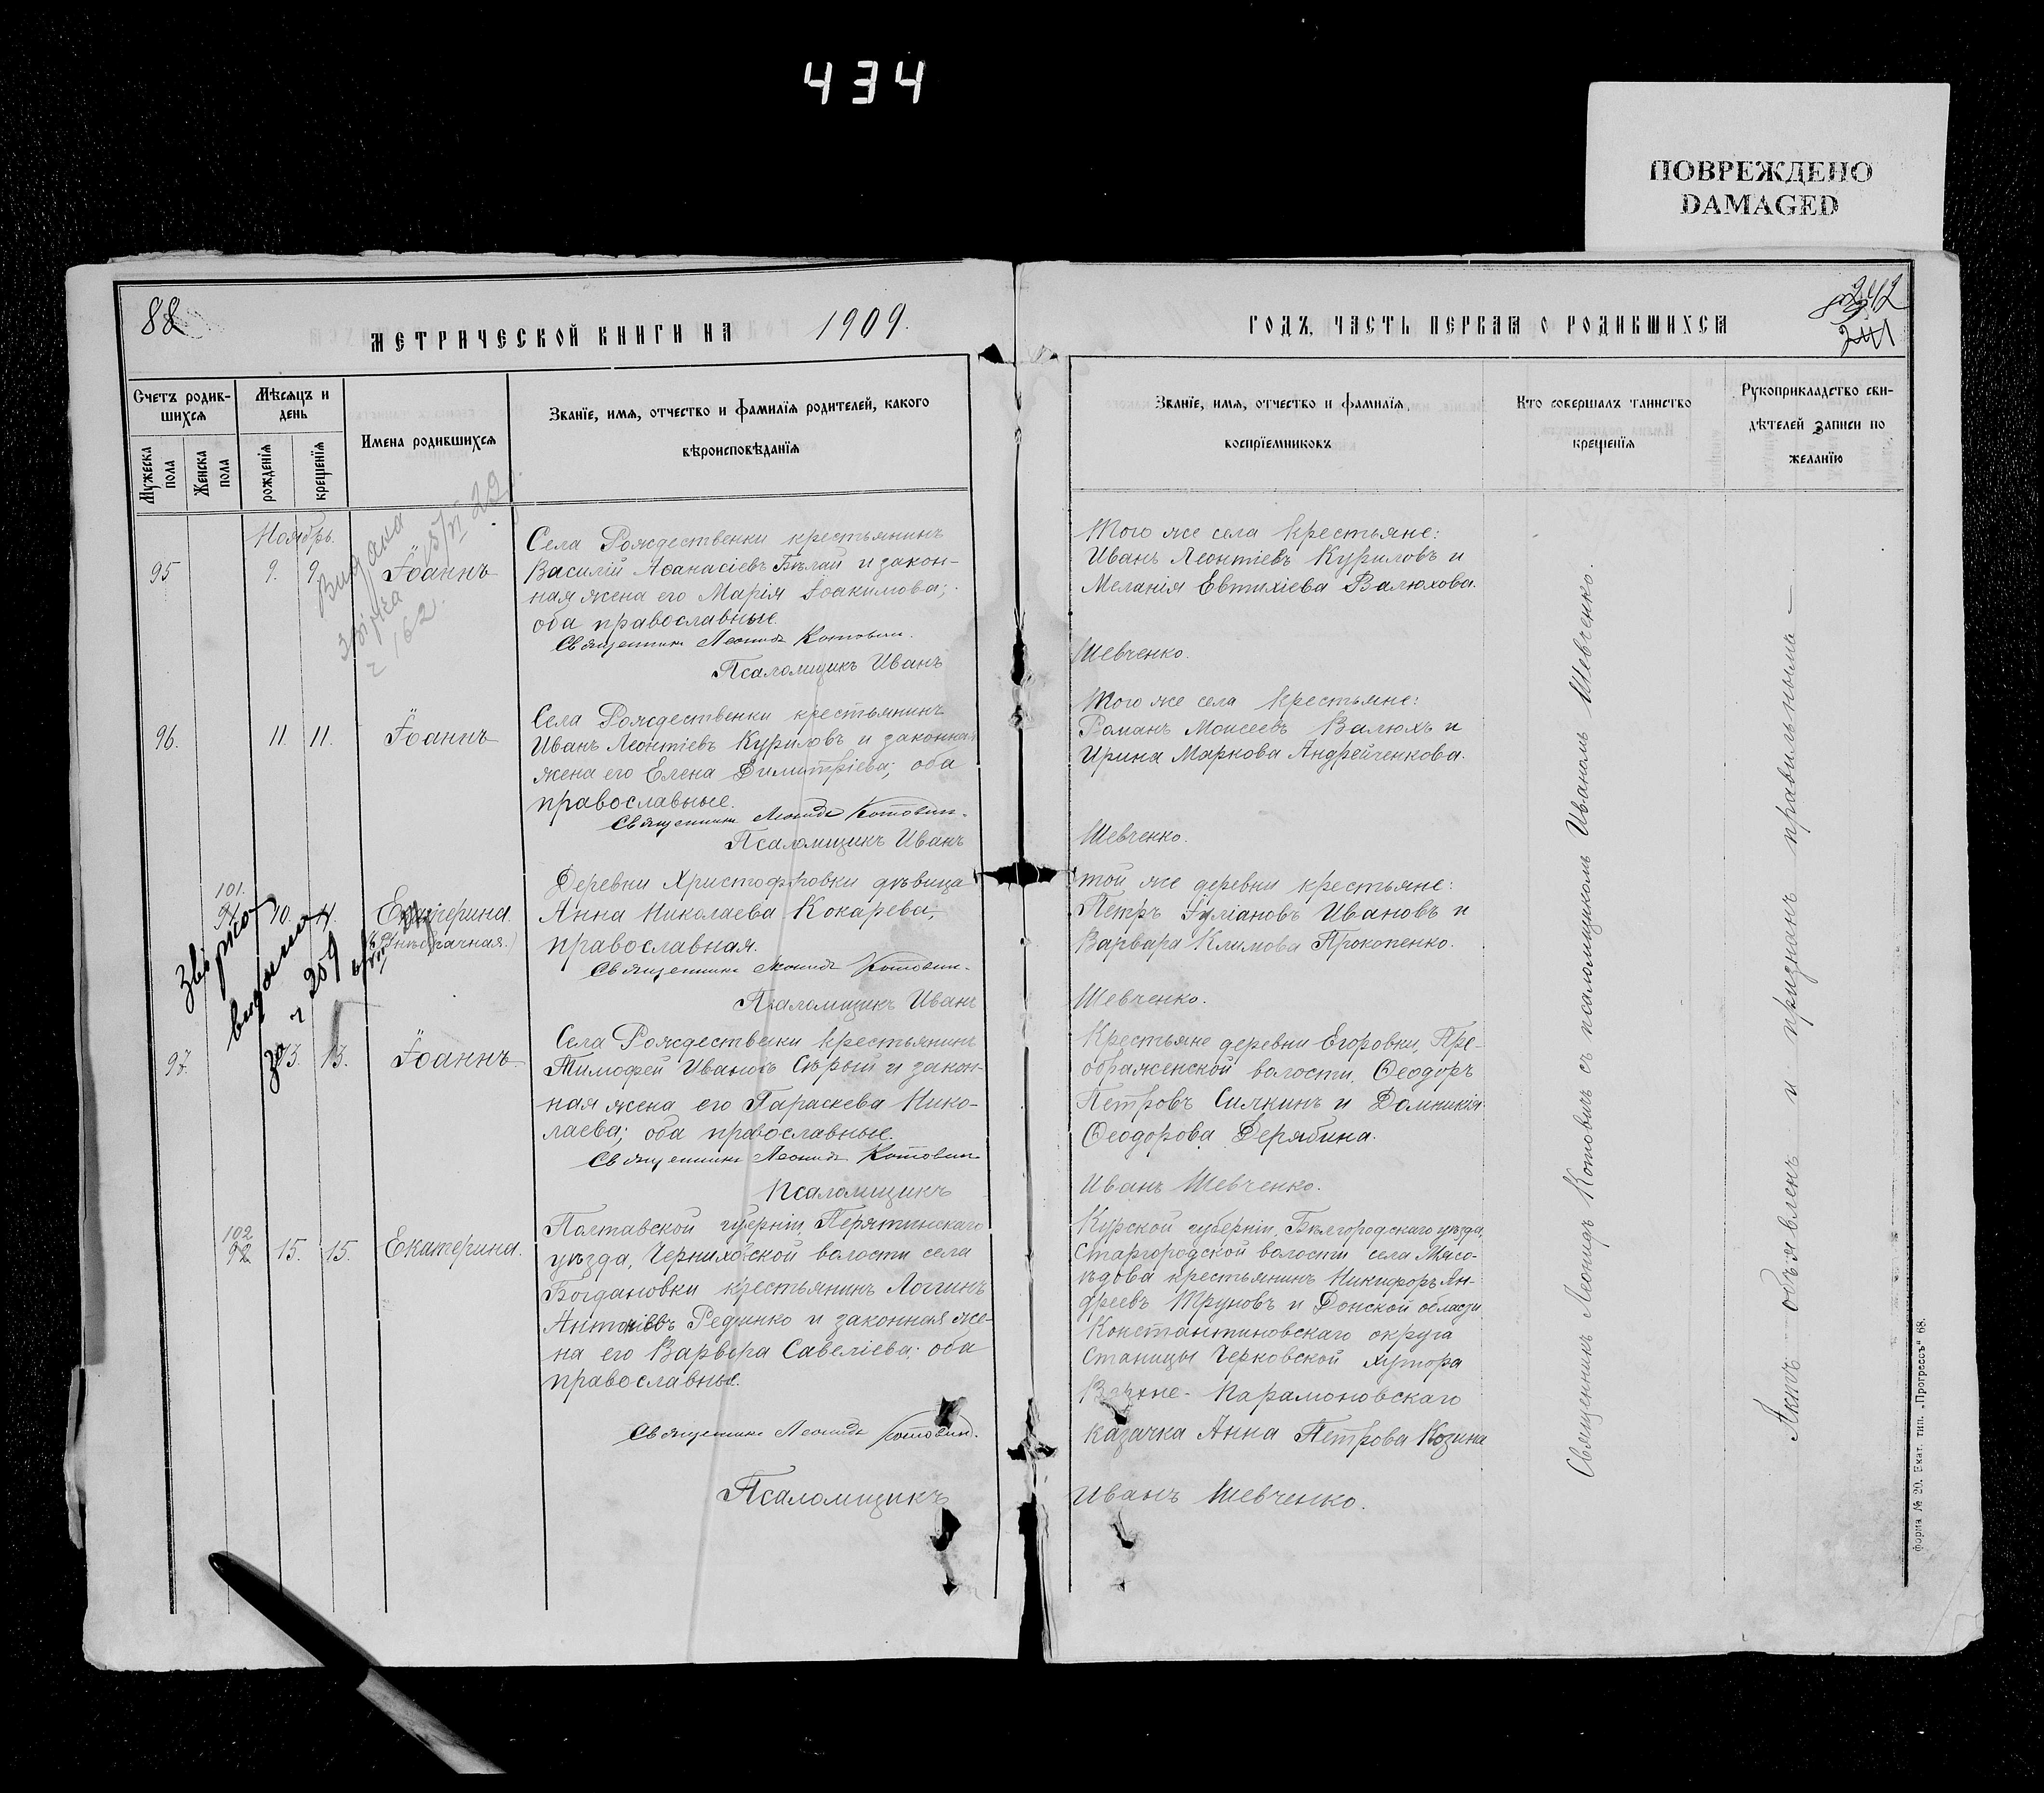 434
ПОВРЕЖДЕНО
DAMAGED
88
МЕТРИЧЕСКОЙ КНИГИ НА 1909.
Счетъ родив-
шихся
Мѣсяцъ и
день
Имена родившихся
Званіе, имя, отчество и фамилія родителей, какого
вѣроисповѣданія
Мужеска пола
Женска пола
рожденія
крещенія
Ноябрь.
95 9. 9. Іоаннъ
Видана
15/VI 29
162
Села Рождественки крестьянинъ
Василій Аѳанасіевъ Бѣлай и закон-
ная жена его Марія Іоакимова;
оба православные
Священникъ Леонидъ Котович.
Псаломщикъ Иванъ
96. 11. 11. Іоаннъ
Села Рождественки крестьянинъ
Иванъ Леонтіевъ Куриловъ и законная
жена его Елена Димитріева; оба
православные.
Священникъ Леонидъ Котович.
Псаломщикъ Иванъ
101.
91. 10. 11. Екатерина.
(Внѣбрачная.)
видано
209
за
Деревни Христофоровки дѣвица
Анна Николаева Кокарева,
православная.
Священникъ Леонидъ Котович.
Псаломщикъ Иванъ
97. 13. 13. Іоаннъ.
Села Рождественки крестьянинъ
Тимофей Ивановъ Сѣрый и закон-
ная жена его Параскева Нико-
лаева; оба православные.
Священникъ Леонидъ Котович
Псаломщикъ
102
92 15. 15. Екатерина.
Полтавской губерніи, Пирятинскаго
уѣзда, Черниховской волости села
Богдановки крестьянинъ Логгинъ
Антоніевъ Рединко и законная же-
на его Варвара Савеліева; оба
православные.
Священникъ Леонидъ Котович.
Псаломщикъ
ГОДЪ, ЧАСТЬ ПЕРВАЯ О РОДИВШИХСЯ
242
241
Званіе, имя, отчество и фамилія
воспріемниковъ
Кто совершалъ таинство
крещенія
Рукоприкладство сви-
дѣтелей записи по
желанію
Того же села крестьяне:
Иванъ Леонтіевъ Куриловъ и
Меланія Евтихіева Валюхова.
Шевченко.
Того же села крестьяне:
Романъ Моисеевъ Валюхъ и
Ирина Маркова Андрейченкова.
Шевченко.
той же деревни крестьяне:
Петръ Іуліановъ Ивановъ и
Варвара Климова Прокопенко.
Шевченко.
Крестьяне деревни Егоровки, Пре-
ображенской волости, Ѳеодоръ
Петровъ Силкинъ и Домникія
Ѳеодорова Дерябина.
Иванъ Шевченко.
Курской губерніи, Бѣлгородскаго уѣзда,
Старгородской волости села Мясо-
ѣдова крестьянинъ Никифоръ Ан-
дреевъ Труновъ и Донской области
Константиновскаго округа
станицы Верховской хутора
Верхне-Парамоновскаго
казачка Анна Петрова Козина
Иванъ Шевченко.
Священникъ Леонидъ Котовичъ съ псаломщикомъ Иваномъ Шевченко.
Актъ объявленъ и признанъ правильнымъ
Форма № 20. Екат. тип. „Прогрессъ" 68.